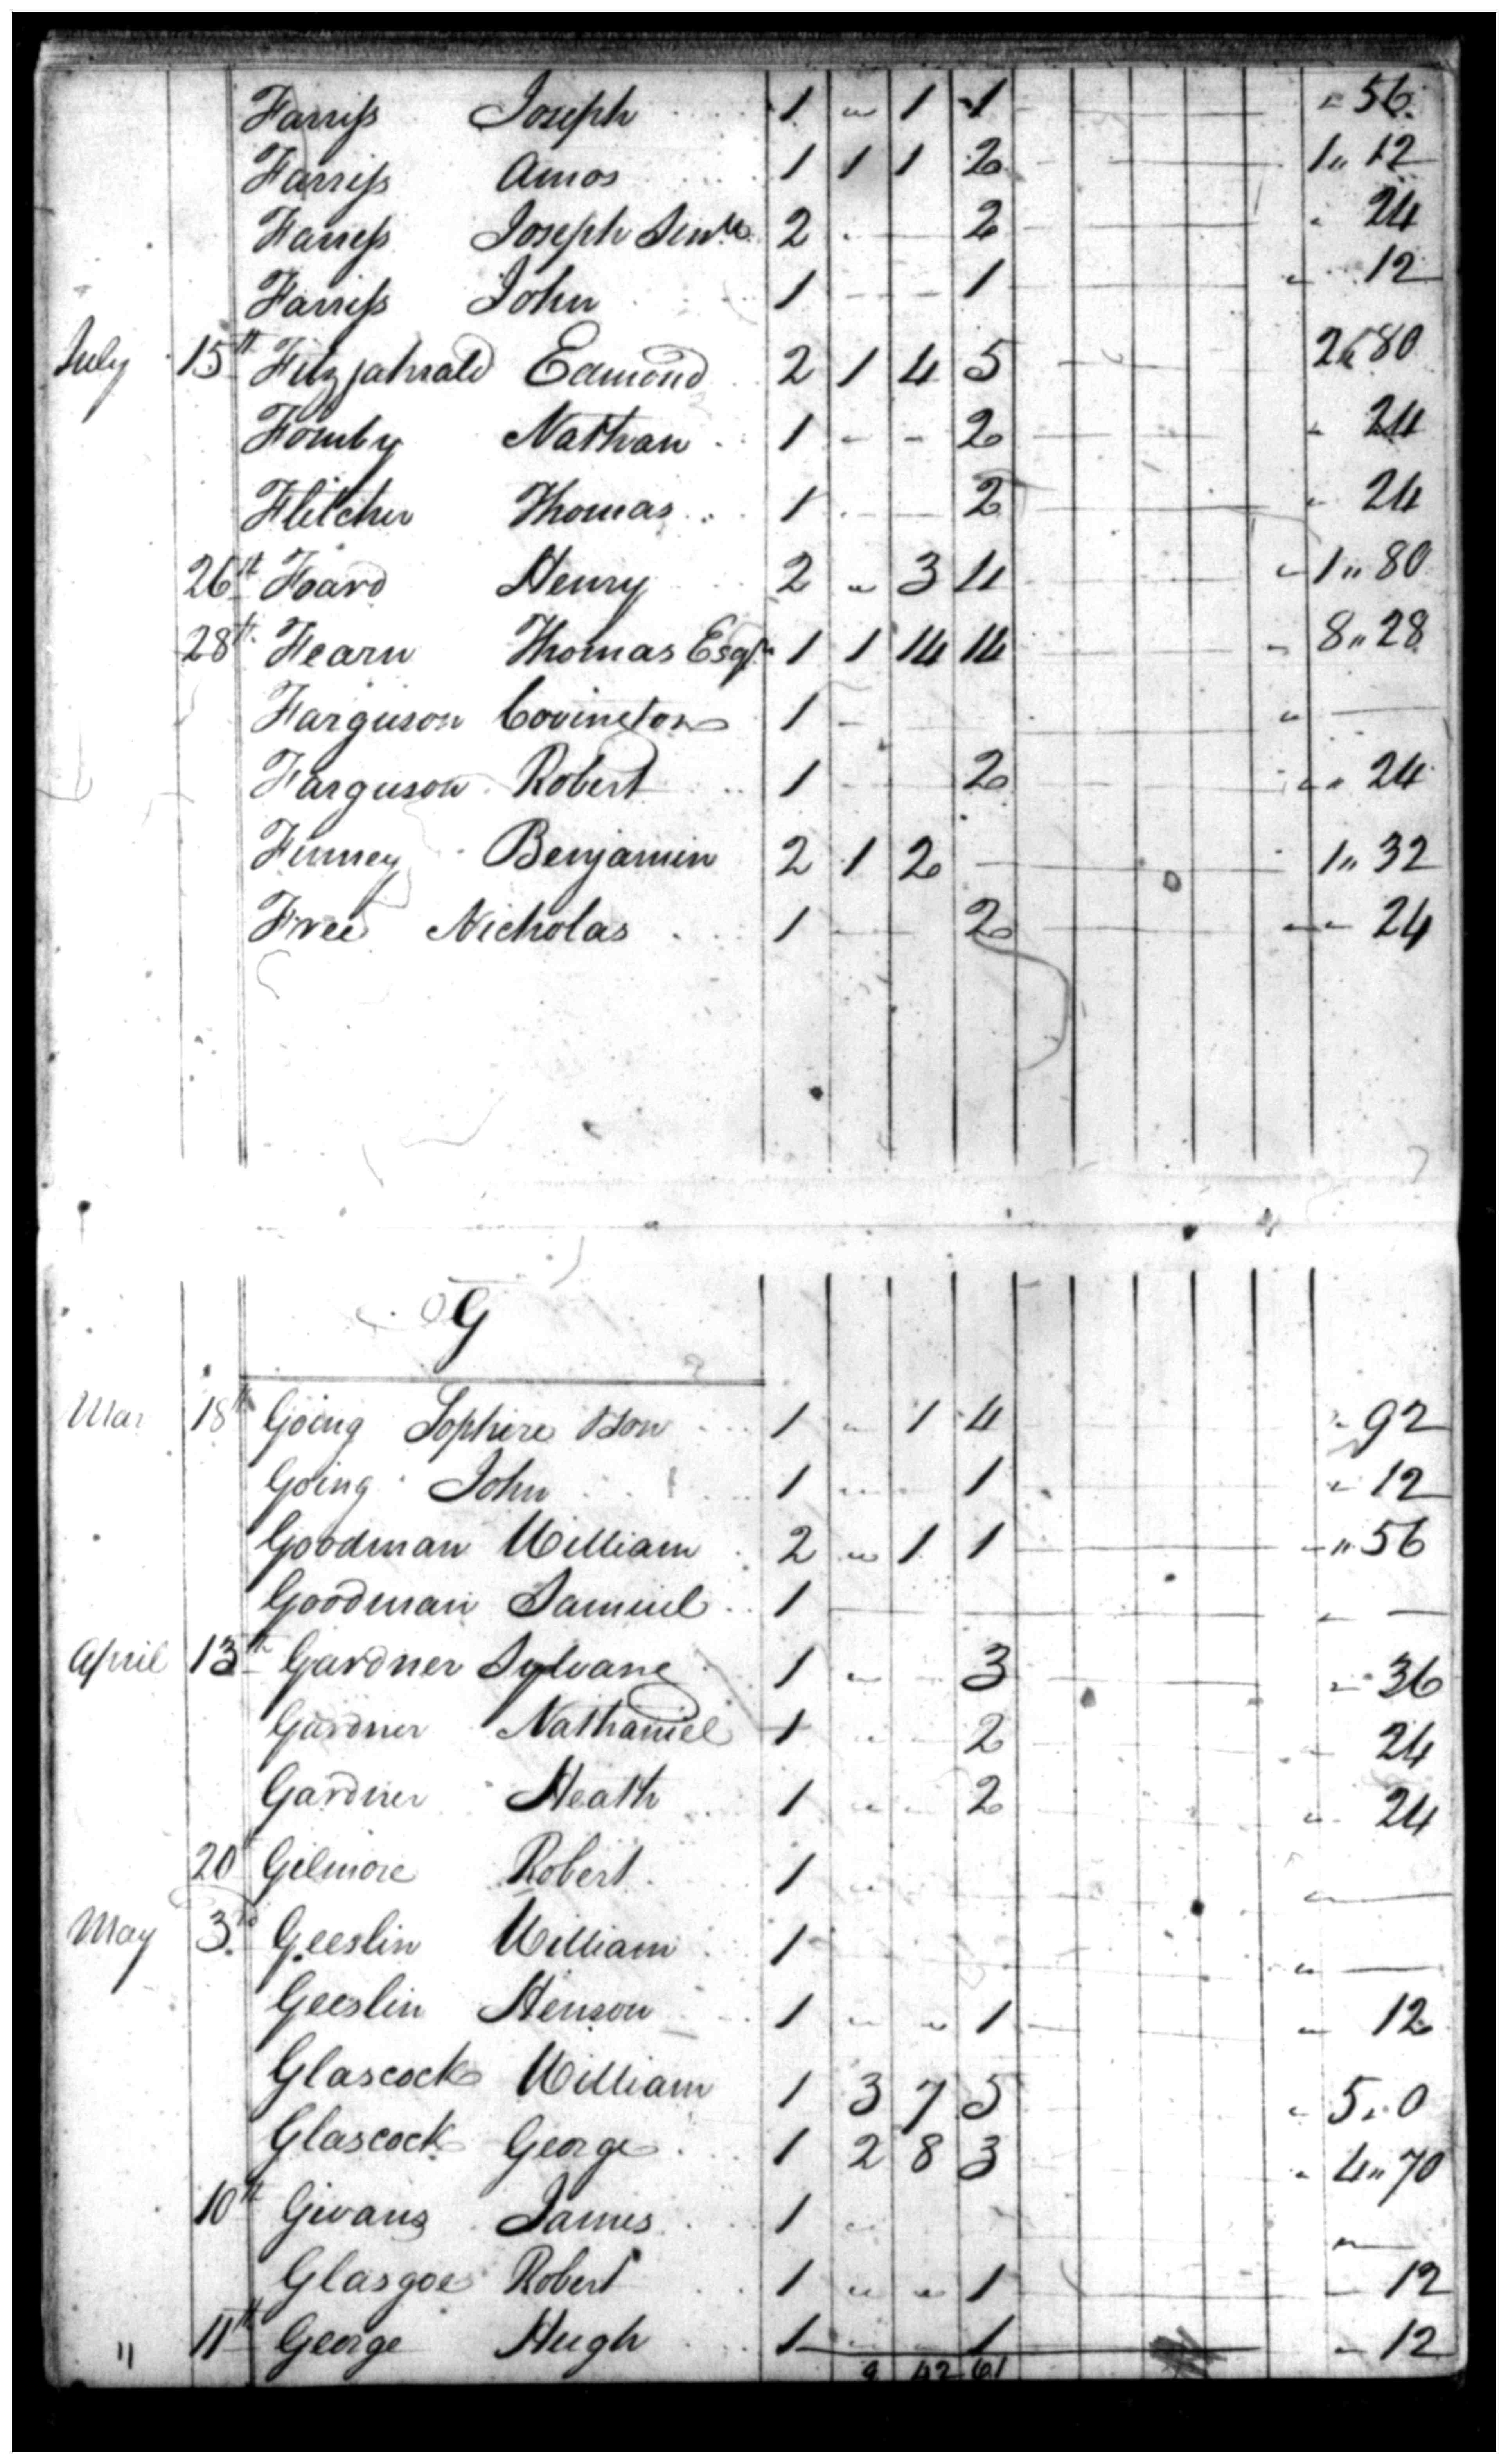 Farriss Joseph 1 " 1 1 " 56
Farriss Amos 1 1 1 2 1 " 12
Farriss Joseph Senr 2 2 " 24
Farriss John 1 1 " 12
July 15th Fitzjahrald Edmond 2 1 4 5 2 " 80
Fomby Nathan 1 " " 2 " 24
Flitcher Thomas 1 2 " 24
26th Foard Henry 2 " 3 4 1 " 80
28th Fearn Thomas Esqr 1 1 14 14 8 " 28
Farguson Covington 1 " —
Farguson Robert 1 2 " 24
Finney Benjamin 2 1 2 — 1 " 32
Free Nicholas 1 2 " 24
G
Mar 18th Going 1 " 1 4 " 92
Going John 1 " 1 " 12
Goodman William 2 " 1 1 " 56
Goodman Samuel 1 — " —
April 13th Gardner Sylvane 1 " 3 " 36
Gardner Nathaniel 1 " 2 24
Gardner Heath 1 " " 2 " 24
20 Gilmore Robert 1 " " —
May 3rd Geeslin William 1 " —
Geeslin Henson 1 " " 1 " 12
Glascock William 1 3 7 5 5 " 0
Glascock George 1 2 8 3 4 " 70
10th Givans James 1 " " —
Glasgoe Robert 1 " " 1 12
" 11th George Hugh 1 1 " 12
9 42 61